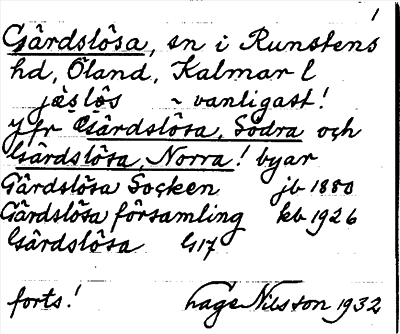 1
Gårdslösa, sn i Runstens
hd, Öland, Kalmar l
jæs̩lös ~ vanligast!
Jfr Gårdslösa, Södra och
Gårdslösa, Norra! byar
Gårdslösa Socken jb 1880
Gårdslösa församling kb 1926
Gårdslösa G17
forts! Hage Nilsson 1932